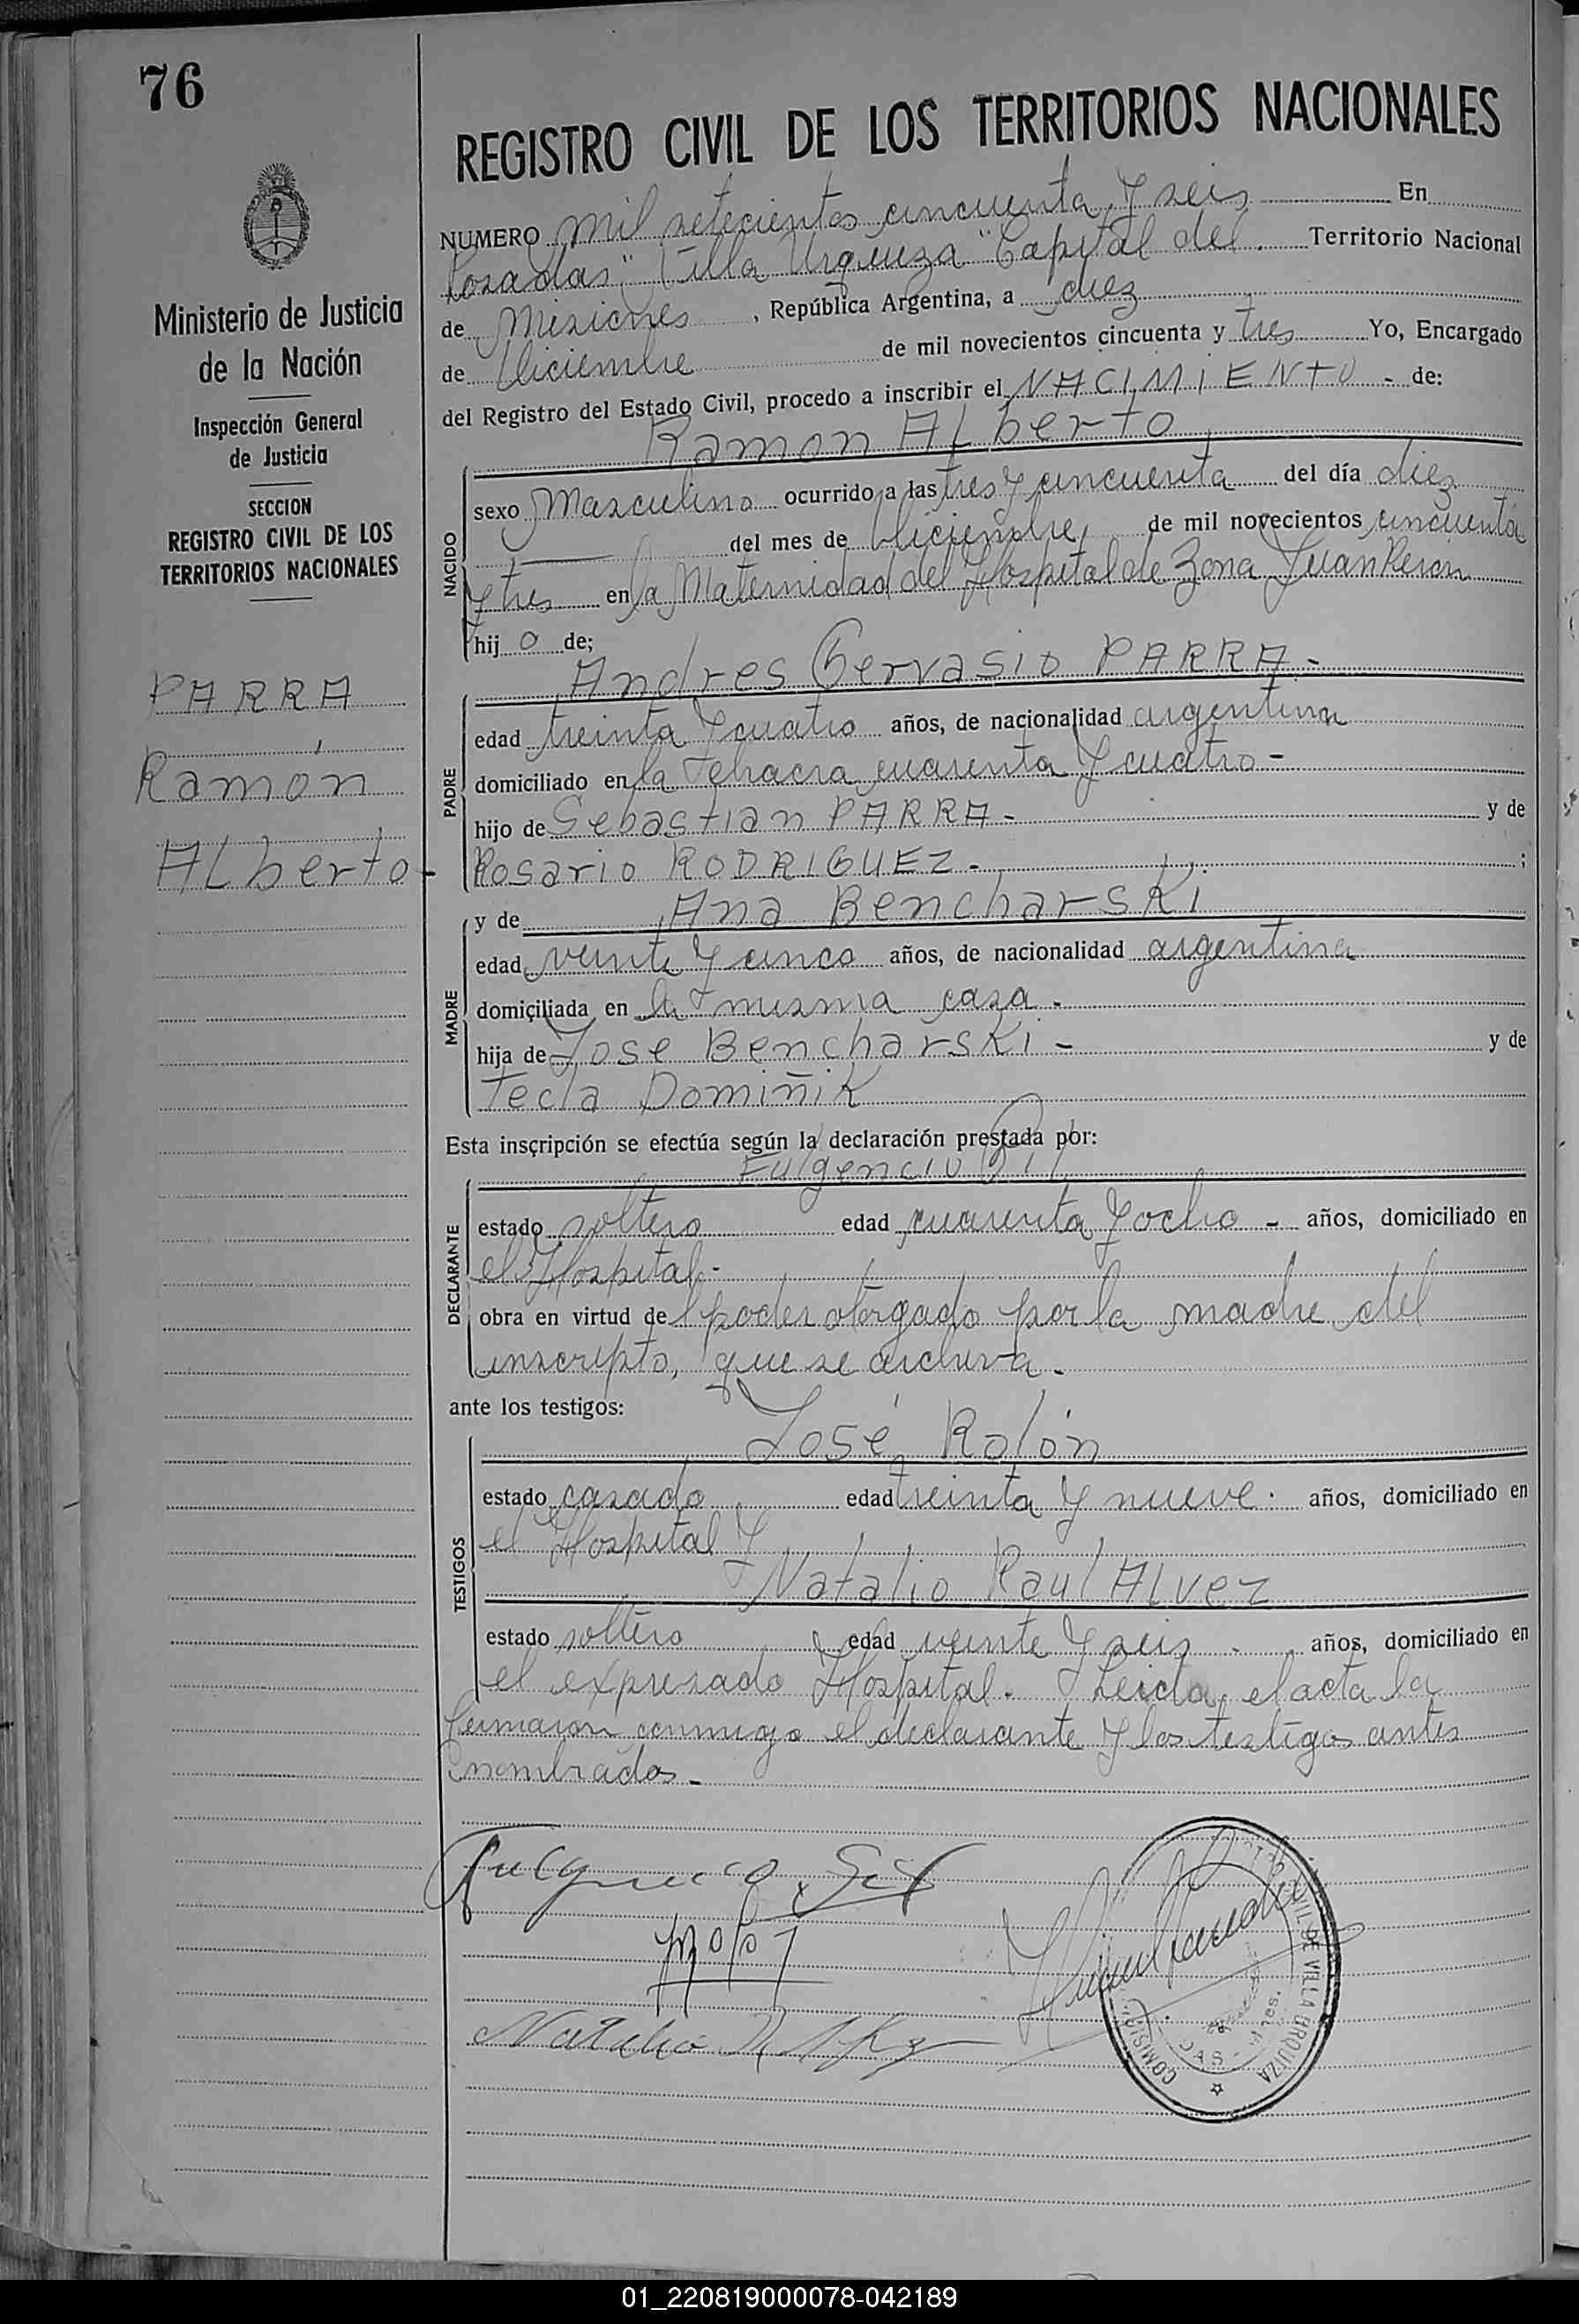 76
Ministerio de Justicia
de la Nación
Inspección General
de Justicia
SECCION
REGISTRO CIVIL DE LOS
TERRITORIOS NACIONALES
PARRA
Ramón
ALberto-
REGISTRO CIVIL DE LOS TERRITORIOS NACIONALES
NUMERO mil setecientos cincuenta y seis En
Posadas "Villa Urquiza" Capital del Territorio Nacional
de Misiones, República Argentina, a diez
de Diciembre de mil novecientos cincuenta y tres Yo, Encargado
del Registro del Estado Civil, procedo a inscribir el NACIMIENTO - de:
Ramon ALberto
NACIDO
sexo Masculino ocurrido a las tres y cincuenta del día diez
del mes de Diciembre de mil novecientos cincuenta
y tres en la Maternidad del Hospital de Zona Juan Perón
hijo de;
Andres Gervasio PARRA -
PADRE
edad treinta y cuatro años, de nacionalidad argentina
domiciliado en la chacra cuarenta y cuatro -
hijo de Sebastian PARRA - y de
Rosario RODRIGUEZ - ;
y de Ana Bencharski
MADRE
edad veinte y cinco años, de nacionalidad argentina
domiciliada en la misma casa -
hija de Jose Bencharski - y de
Tecla Domiñik
Esta inscripción se efectúa según la declaración prestada por:
Fulgencio Gil
DECLARANTE
estado soltero edad cuarenta y ocho - años, domiciliado en
el Hospital -
obra en virtud del poder otorgado por la madre del
inscripto, que se archiva -
ante los testigos:
José Rolón
TESTIGOS
estado casado edad treinta y nueve . años, domiciliado en
el Hospital y
Natalio Raul ALvez
estado soltero edad veinte y seis - años, domiciliado en
el expresado Hospital. Leida el acta la
firmaron conmigo el declarante y los testigos antes
nombrados -
Fulgencio Gil
Natalio R. Alvez
CIVIL DE VILLA URQUIZA
01_220819000078-042189